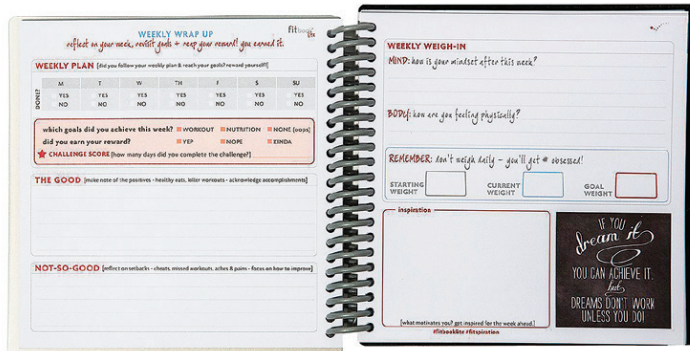 WEEKLY WRAP UP
fitbook
lite
reflect on your week, revisit goals + reap your reward! you earned it.
WEEKLY PLAN [did you follow your weekly plan & reach your goals? reward yourself!]
M T W TH F S SU
DONE?
YES YES YES YES YES YES YES
NO NO NO NO NO NO NO
which goals did you achieve this week? WORKOUT NUTRITION NONE (oops)
did you earn your reward? YEP NOPE KINDA
CHALLENGE SCORE [how many days did you complete the challenge?]
THE GOOD [make note of the positives - healthy eats, killer workouts - acknowledge accomplishments]
NOT-SO-GOOD [reflect on setbacks - cheats, missed workouts, aches & pains - focus on how to improve]
WEEKLY WEIGH-IN
MIND: how is your mindset after this week?
BODY: how are you feeling physically?
REMEMBER: don't weigh daily - you'll get # obsessed!
STARTING WEIGHT
CURRENT WEIGHT
GOAL WEIGHT
inspiration
[what motivates you? get inspired for the week ahead.]
#fitbooklite #fitspiration
IF YOU
dream it
YOU CAN ACHIEVE IT.
but
DREAMS DON'T WORK
UNLESS YOU DO!